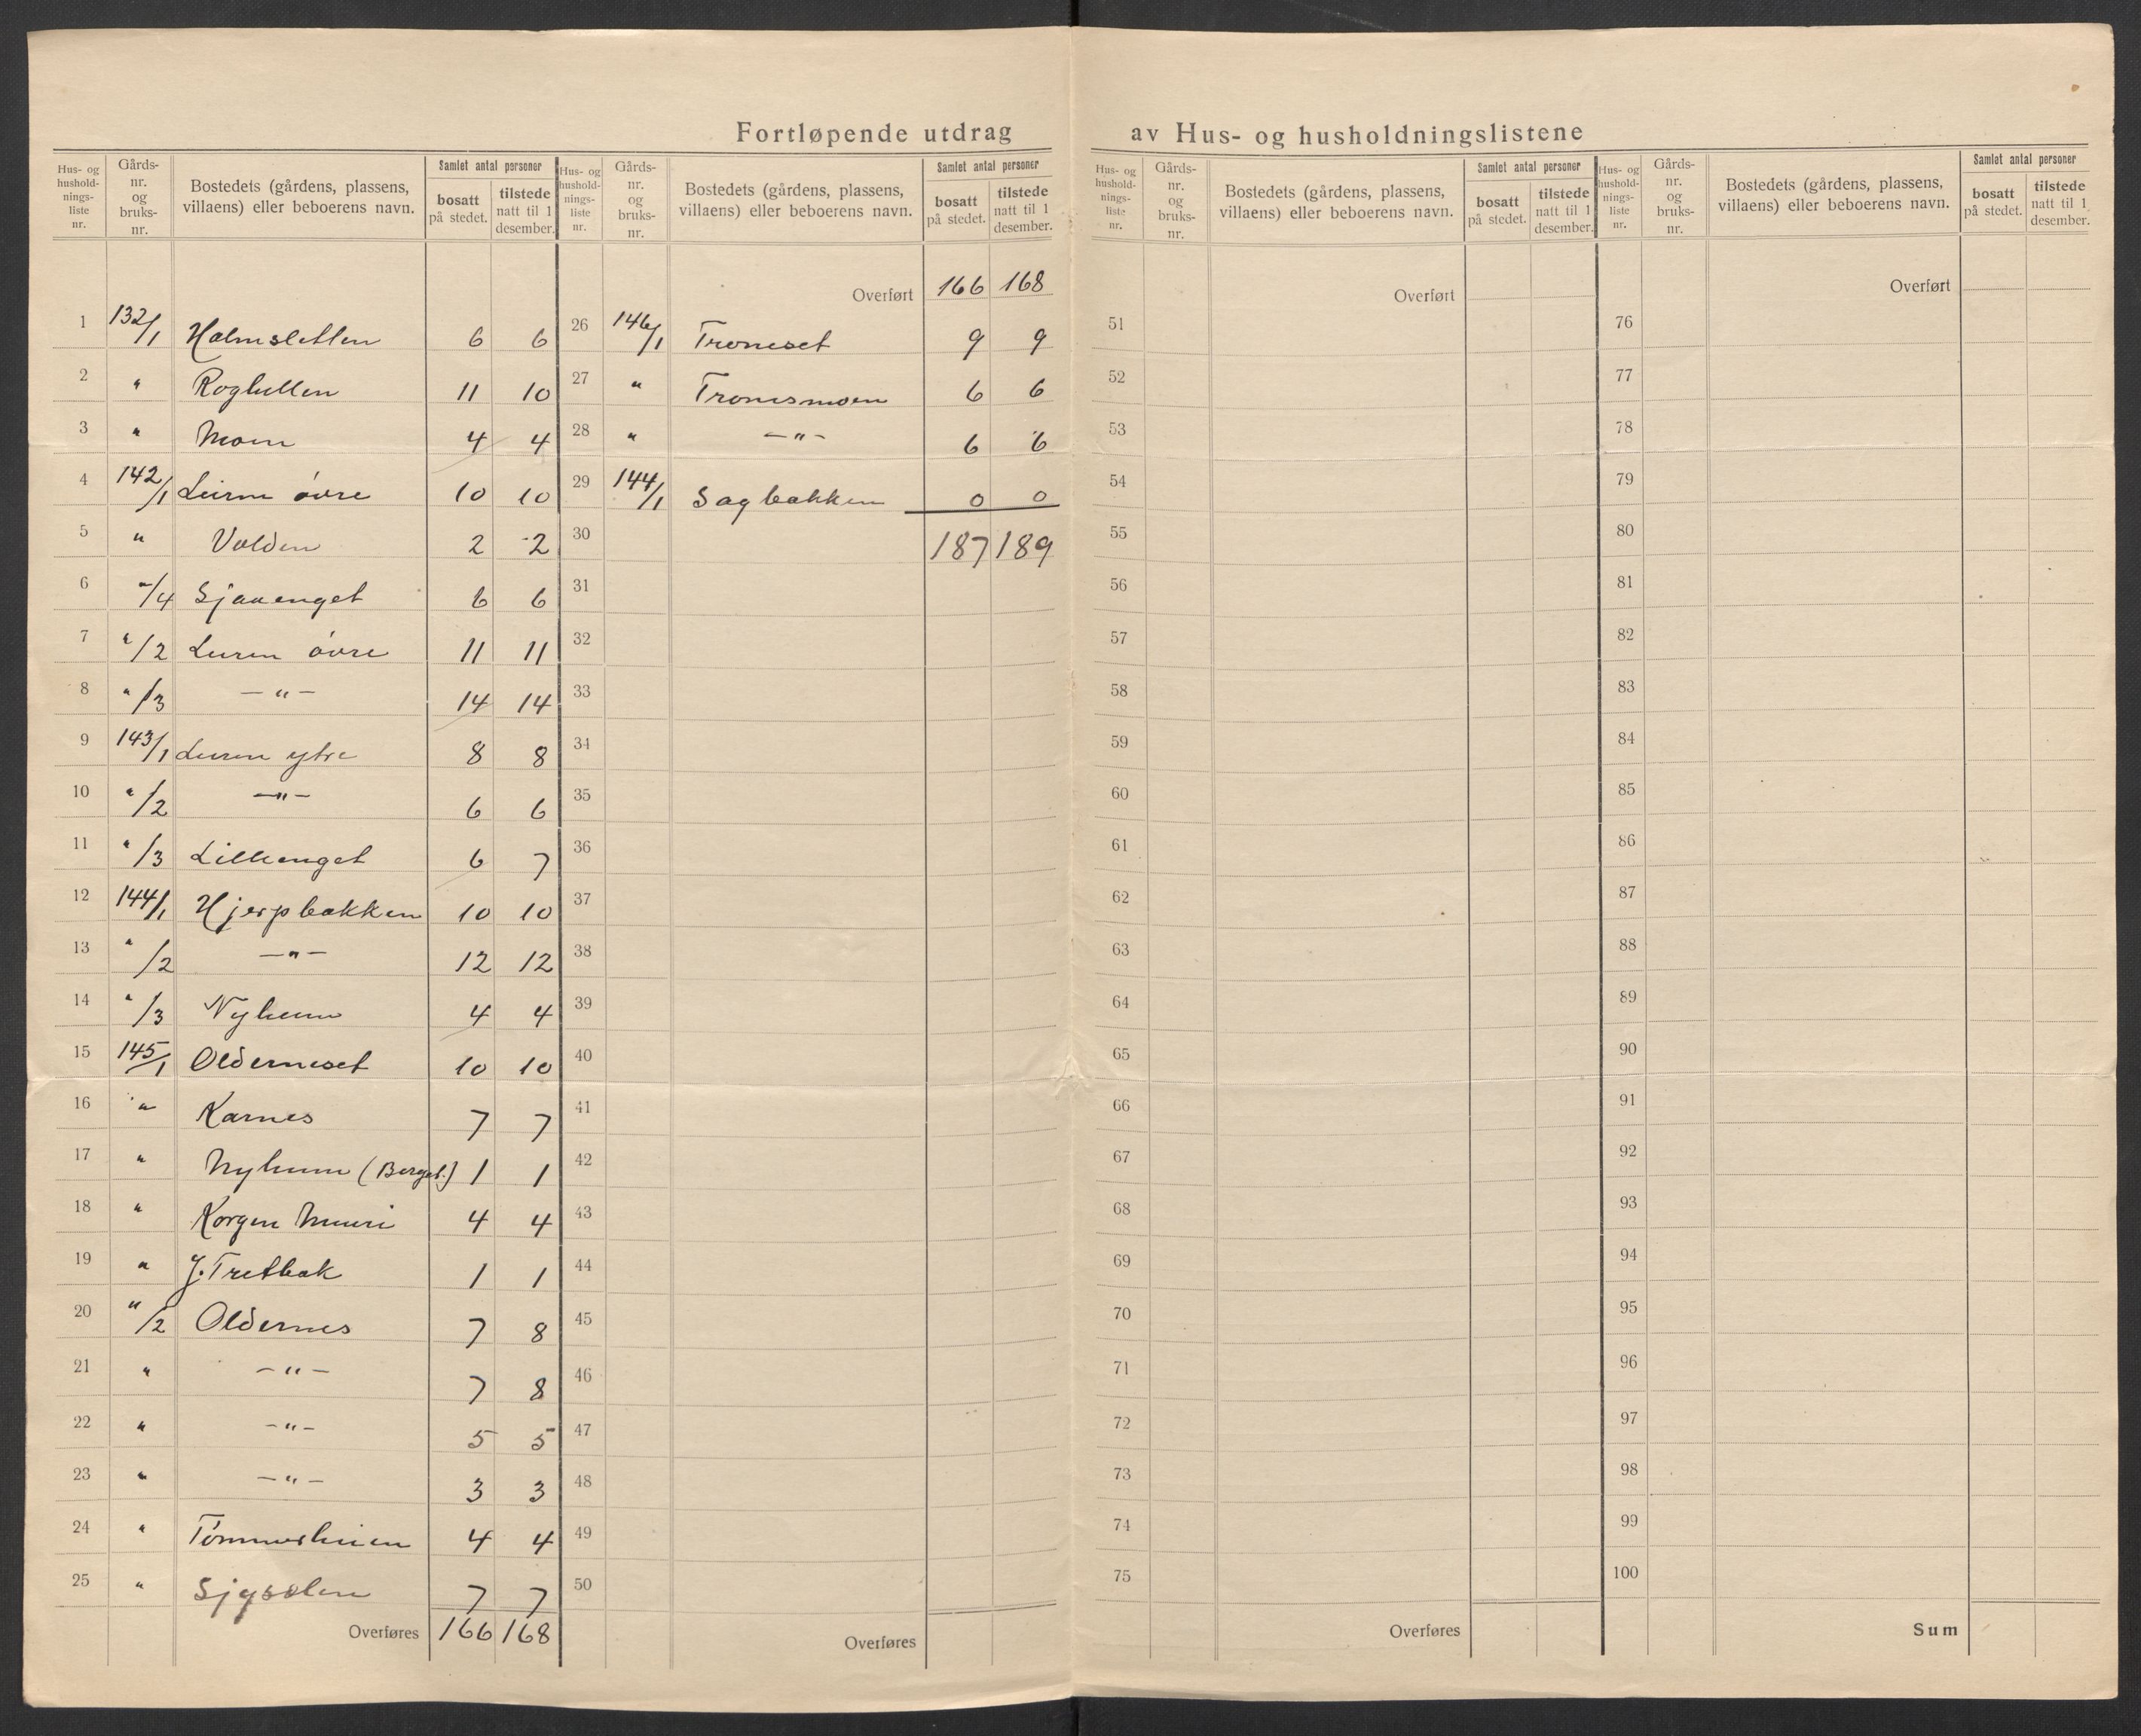 Fortløpende utdrag av Hus- og husholdningslistene
Hus- og hushold- nings- liste nr. | Gårds- nr. og bruks- nr. | Bostedets (gårdens, plassens, villaens) eller beboerens navn. | Samlet antal personer | bosatt på stedet. | tilstede natt til 1 desember.
1 132/1 Holmsletten 6 6
2 " Roghellen 11 10
3 " Moen 4 4
4 142/1 Leiren övre 10 10
5 " Volden 2 2
6 "/4 Sjaaenget 6 6
7 "/2 Leiren övre 11 11
8 "/3 — " — 14 14
9 143/1 Leiren ytre 8 8
10 "/2 — " — 6 6
11 "/3 Lilleenget 6 7
12 144/1 Hjerpbakken 10 10
13 "/2 — " — 12 12
14 "/3 Nyheim 4 4
15 145/1 Olderneset 10 10
16 " Karnes 7 7
17 " Nyheim (Berget.) 1 1
18 " Korgen Meieri 4 4
19 " J. Tretbak 1 1
20 "/2 Oldernes 7 8
21 " — " — 7 8
22 " — " — 5 5
23 " — " — 3 3
24 " Tömmerheien 4 4
25 " 7 7
Overføres 166 168
Hus- og hushold- nings- liste nr. | Gårds- nr. og bruks- nr. | Bostedets (gårdens, plassens, villaens) eller beboerens navn. | Samlet antal personer | bosatt på stedet. | tilstede natt til 1 desember.
Overført 166 168
26 146/1 Troneset 9 9
27 " Tronesmoen 6 6
28 " — " — 6 6
29 144/1 Sagbakken 0 0
30 187 189
31
32
33
34
35
36
37
38
39
40
41
42
43
44
45
46
47
48
49
50
Overføres
Hus- og hushold- nings- liste nr. | Gårds- nr. og bruks- nr. | Bostedets (gårdens, plassens, villaens) eller beboerens navn. | Samlet antal personer | bosatt på stedet. | tilstede natt til 1 desember.
Overført
51
52
53
54
55
56
57
58
59
60
61
62
63
64
65
66
67
68
69
70
71
72
73
74
75
Overføres
Hus- og hushold- nings- liste nr. | Gårds- nr. og bruks- nr. | Bostedets (gårdens, plassens, villaens) eller beboerens navn. | Samlet antal personer | bosatt på stedet. | tilstede natt til 1 desember.
Overført
76
77
78
79
80
81
82
83
84
85
86
87
88
89
90
91
92
93
94
95
96
97
98
99
100
Sum